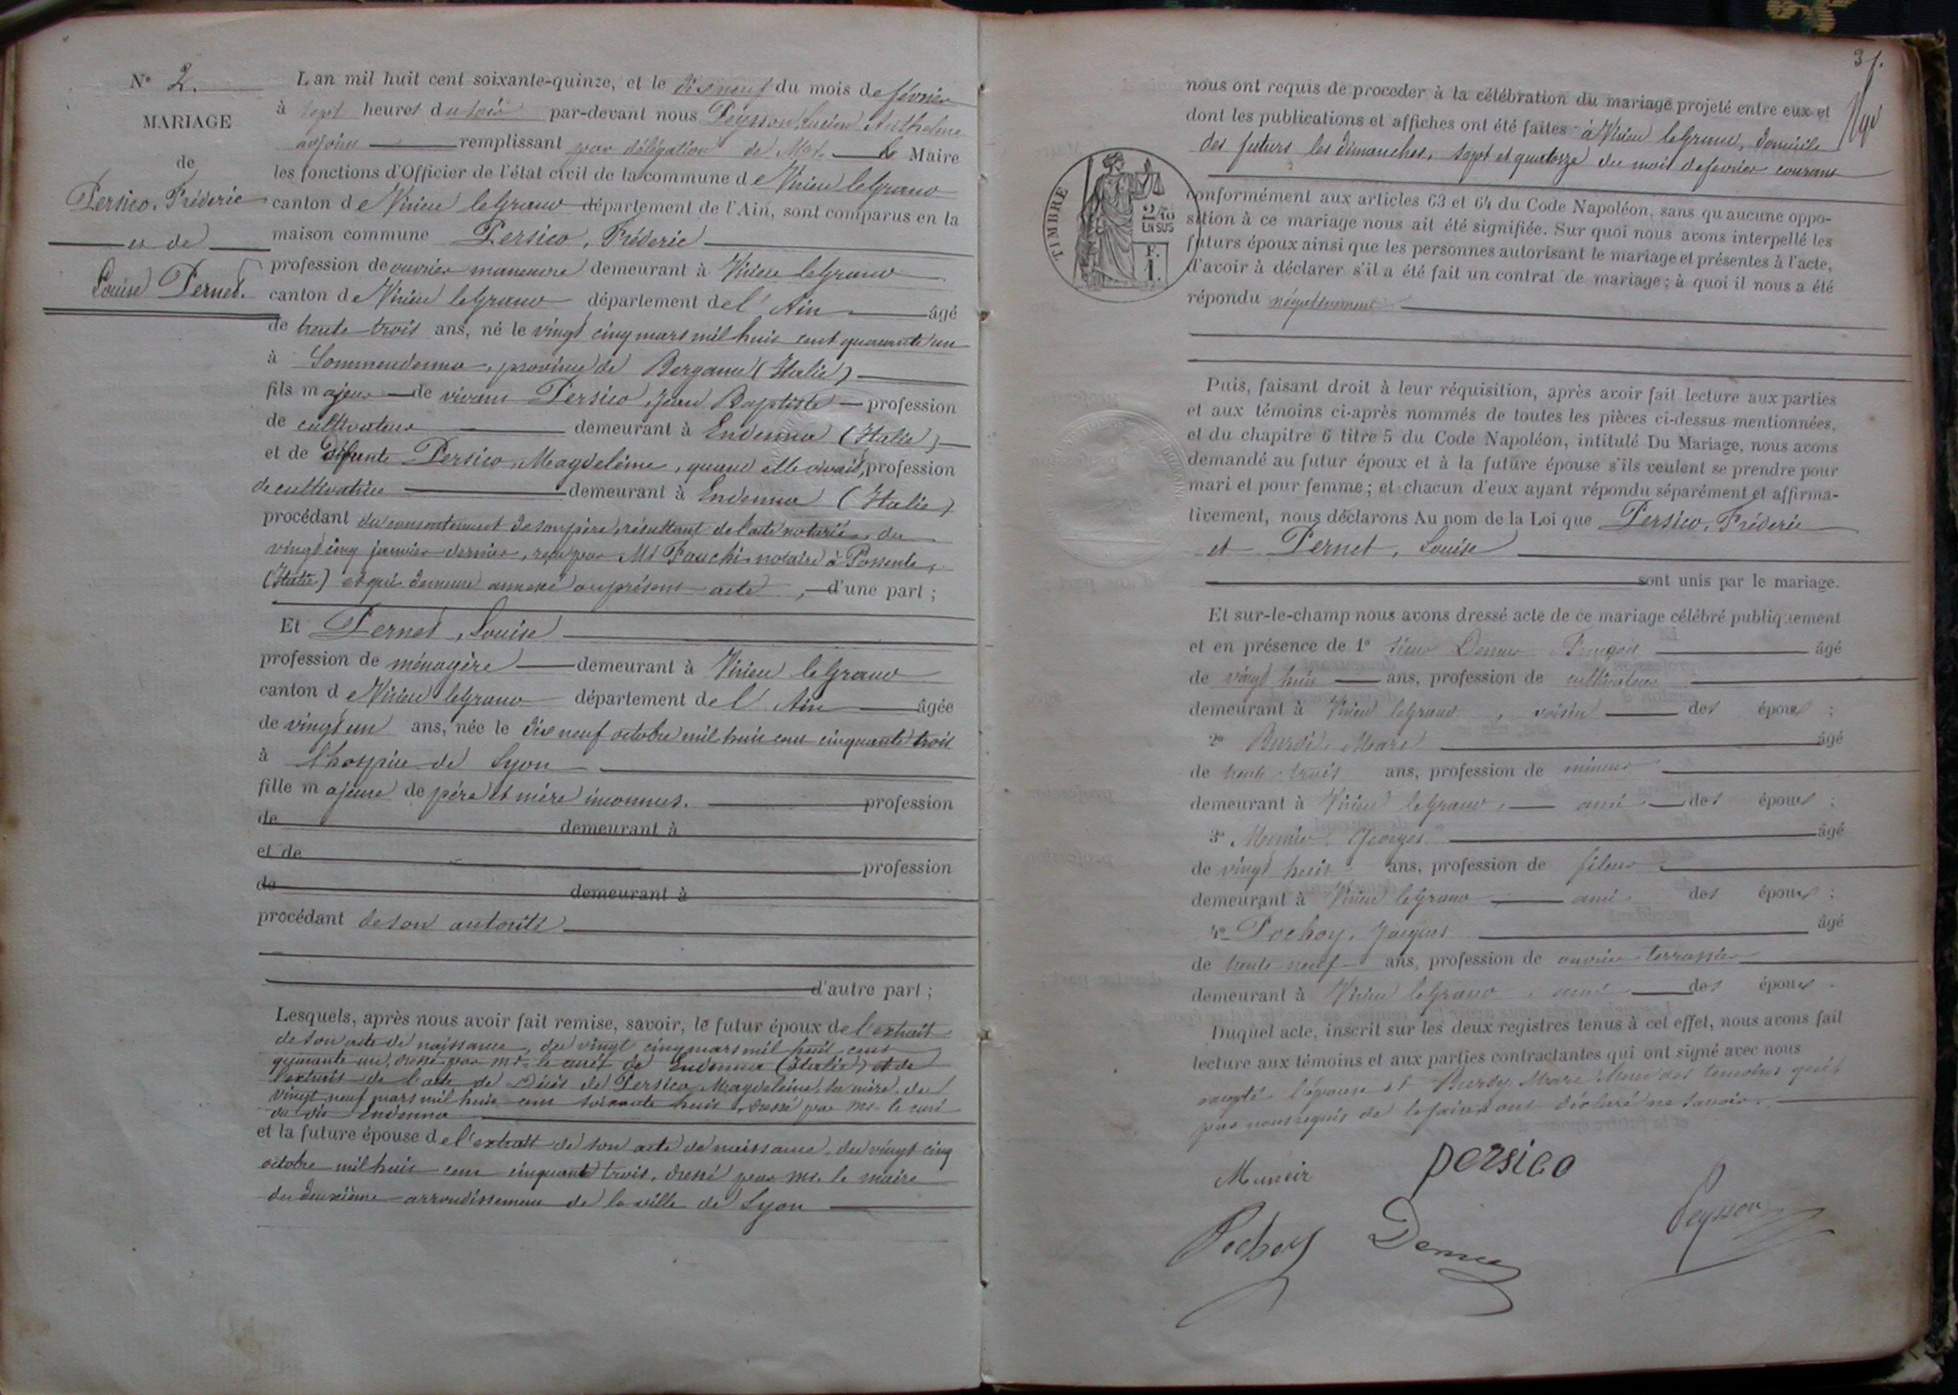 N° 2.
MARIAGE
de
Persico, Fréderic
et de
Louise Pernet.
L'an mil huit cent soixante-quinze, et le dix neuf du mois de février
à sept heures du soir par-devant nous Peysson, Lucien Anthelme
adjoint remplissant par délégation de Mr. le Maire
les fonctions d'Officier de l'état civil de la commune de Virieu le Grand
canton de Virieu le Grand département de l'Ain, sont comparus en la
maison commune Persico, Fréderic
profession de ouvrier manœuvre demeurant à Virieu le Grand
canton de Virieu le Grand département de l'Ain âgé
de trente trois ans, né le vingt cinq mars mil huit cent quarante un
à Sommendenna, province de Bergame (Italie)
fils majeur de vivant Persico, Jean Baptiste profession
de cultivateur demeurant à Endenna (Italie)
et de défunte Persico, Magdeleine, quand elle vivait, profession
de cultivatrice demeurant à Endenna (Italie)
procédant du consentement de son père, résultant de l'acte notarié, du
vingt cinq janvier dernier, reçu par Mr notaire à
(Italie) et qui demeure annexé au présent acte, d'une part ;
Et Pernet, Louise
profession de ménagère demeurant à Virieu le Grand
canton de Virieu le Grand département de l'Ain âgée
de vingt un ans, née le dix neuf octobre mil huit cent cinquante trois
à l'hospice de Lyon
fille majeure de père et mère inconnus. profession
de demeurant à
et de profession
de demeurant à
procédant de son autorité
d'autre part ;
Lesquels, après nous avoir fait remise, savoir, le futur époux de l'extrait
de son acte de naissance, du vingt cinq mars mil huit cent
quarante un, dressé par Mr. le curé de Endenna (Italie) et de
l'extrait de l'acte de décès de Persico Magdeleine, sa mère, du
vingt neuf mars mil huit cent soixante huit, dressé par Mr. le curé
du dit Endenna
et la future épouse de l'extrait de son acte de naissance, du vingt cinq
octobre mil huit cent cinquante trois, dressé par Mr. le maire
du deuxième arrondissement de la ville de Lyon
31.
nous ont requis de procéder à la célébration du mariage projeté entre eux et
dont les publications et affiches ont été faites à Virieu le Grand, domicile
des futurs les dimanches, sept et quatorze du mois de fevrier courant
TIMBRE
2/10
EN SUS
F.
1.
conformément aux articles 63 et 64 du Code Napoléon, sans qu'aucune oppo-
sition à ce mariage nous ait été signifiée. Sur quoi nous avons interpellé les
futurs époux ainsi que les personnes autorisant le mariage et présentes à l'acte,
d'avoir à déclarer s'il a été fait un contrat de mariage ; à quoi il nous a été
répondu négativement
Puis, faisant droit à leur réquisition, après avoir fait lecture aux parties
et aux témoins ci-après nommés de toutes les pièces ci-dessus mentionnées,
et du chapitre 6 titre 5 du Code Napoléon, intitulé Du Mariage, nous avons
demandé au futur époux et à la future épouse s'ils veulent se prendre pour
mari et pour femme ; et chacun d'eux ayant répondu séparément et affirma-
tivement, nous déclarons Au nom de la Loi que Persico, Fréderic
et Pernet, Louise
sont unis par le mariage.
Et sur-le-champ nous avons dressé acte de ce mariage célébré publiquement
et en présence de 1° sieur François âgé
de vingt huit ans, profession de cultivateur
demeurant à Virieu le Grand, voisin des époux ;
2° Burdi, Marc âgé
de trente trois ans, profession de mineur
demeurant à Virieu le Grand, ami des époux ;
3° Munier, Georges âgé
de vingt huit ans, profession de fileur
demeurant à Virieu le Grand ami des époux ;
4° Pochoy, Jacques âgé
de trente neuf ans, profession de ouvrier terrassier
demeurant à Virieu le Grand, ami des époux.
Duquel acte, inscrit sur les deux registres tenus à cet effet, nous avons fait
lecture aux témoins et aux parties contractantes qui ont signé avec nous
excepté l'épouse et Burdi, Marc l'un des témoins qui
par nous requis de le faire, ont déclaré ne savoir.
Munier
persico
Pochoy
Peysson